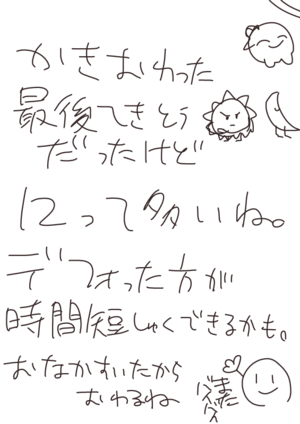 かきおわった
最後てきとう
だったけど
12って多いね。
デフォった方が
時間短しゅくできるかも。
おなかすいたから
おわるね
また